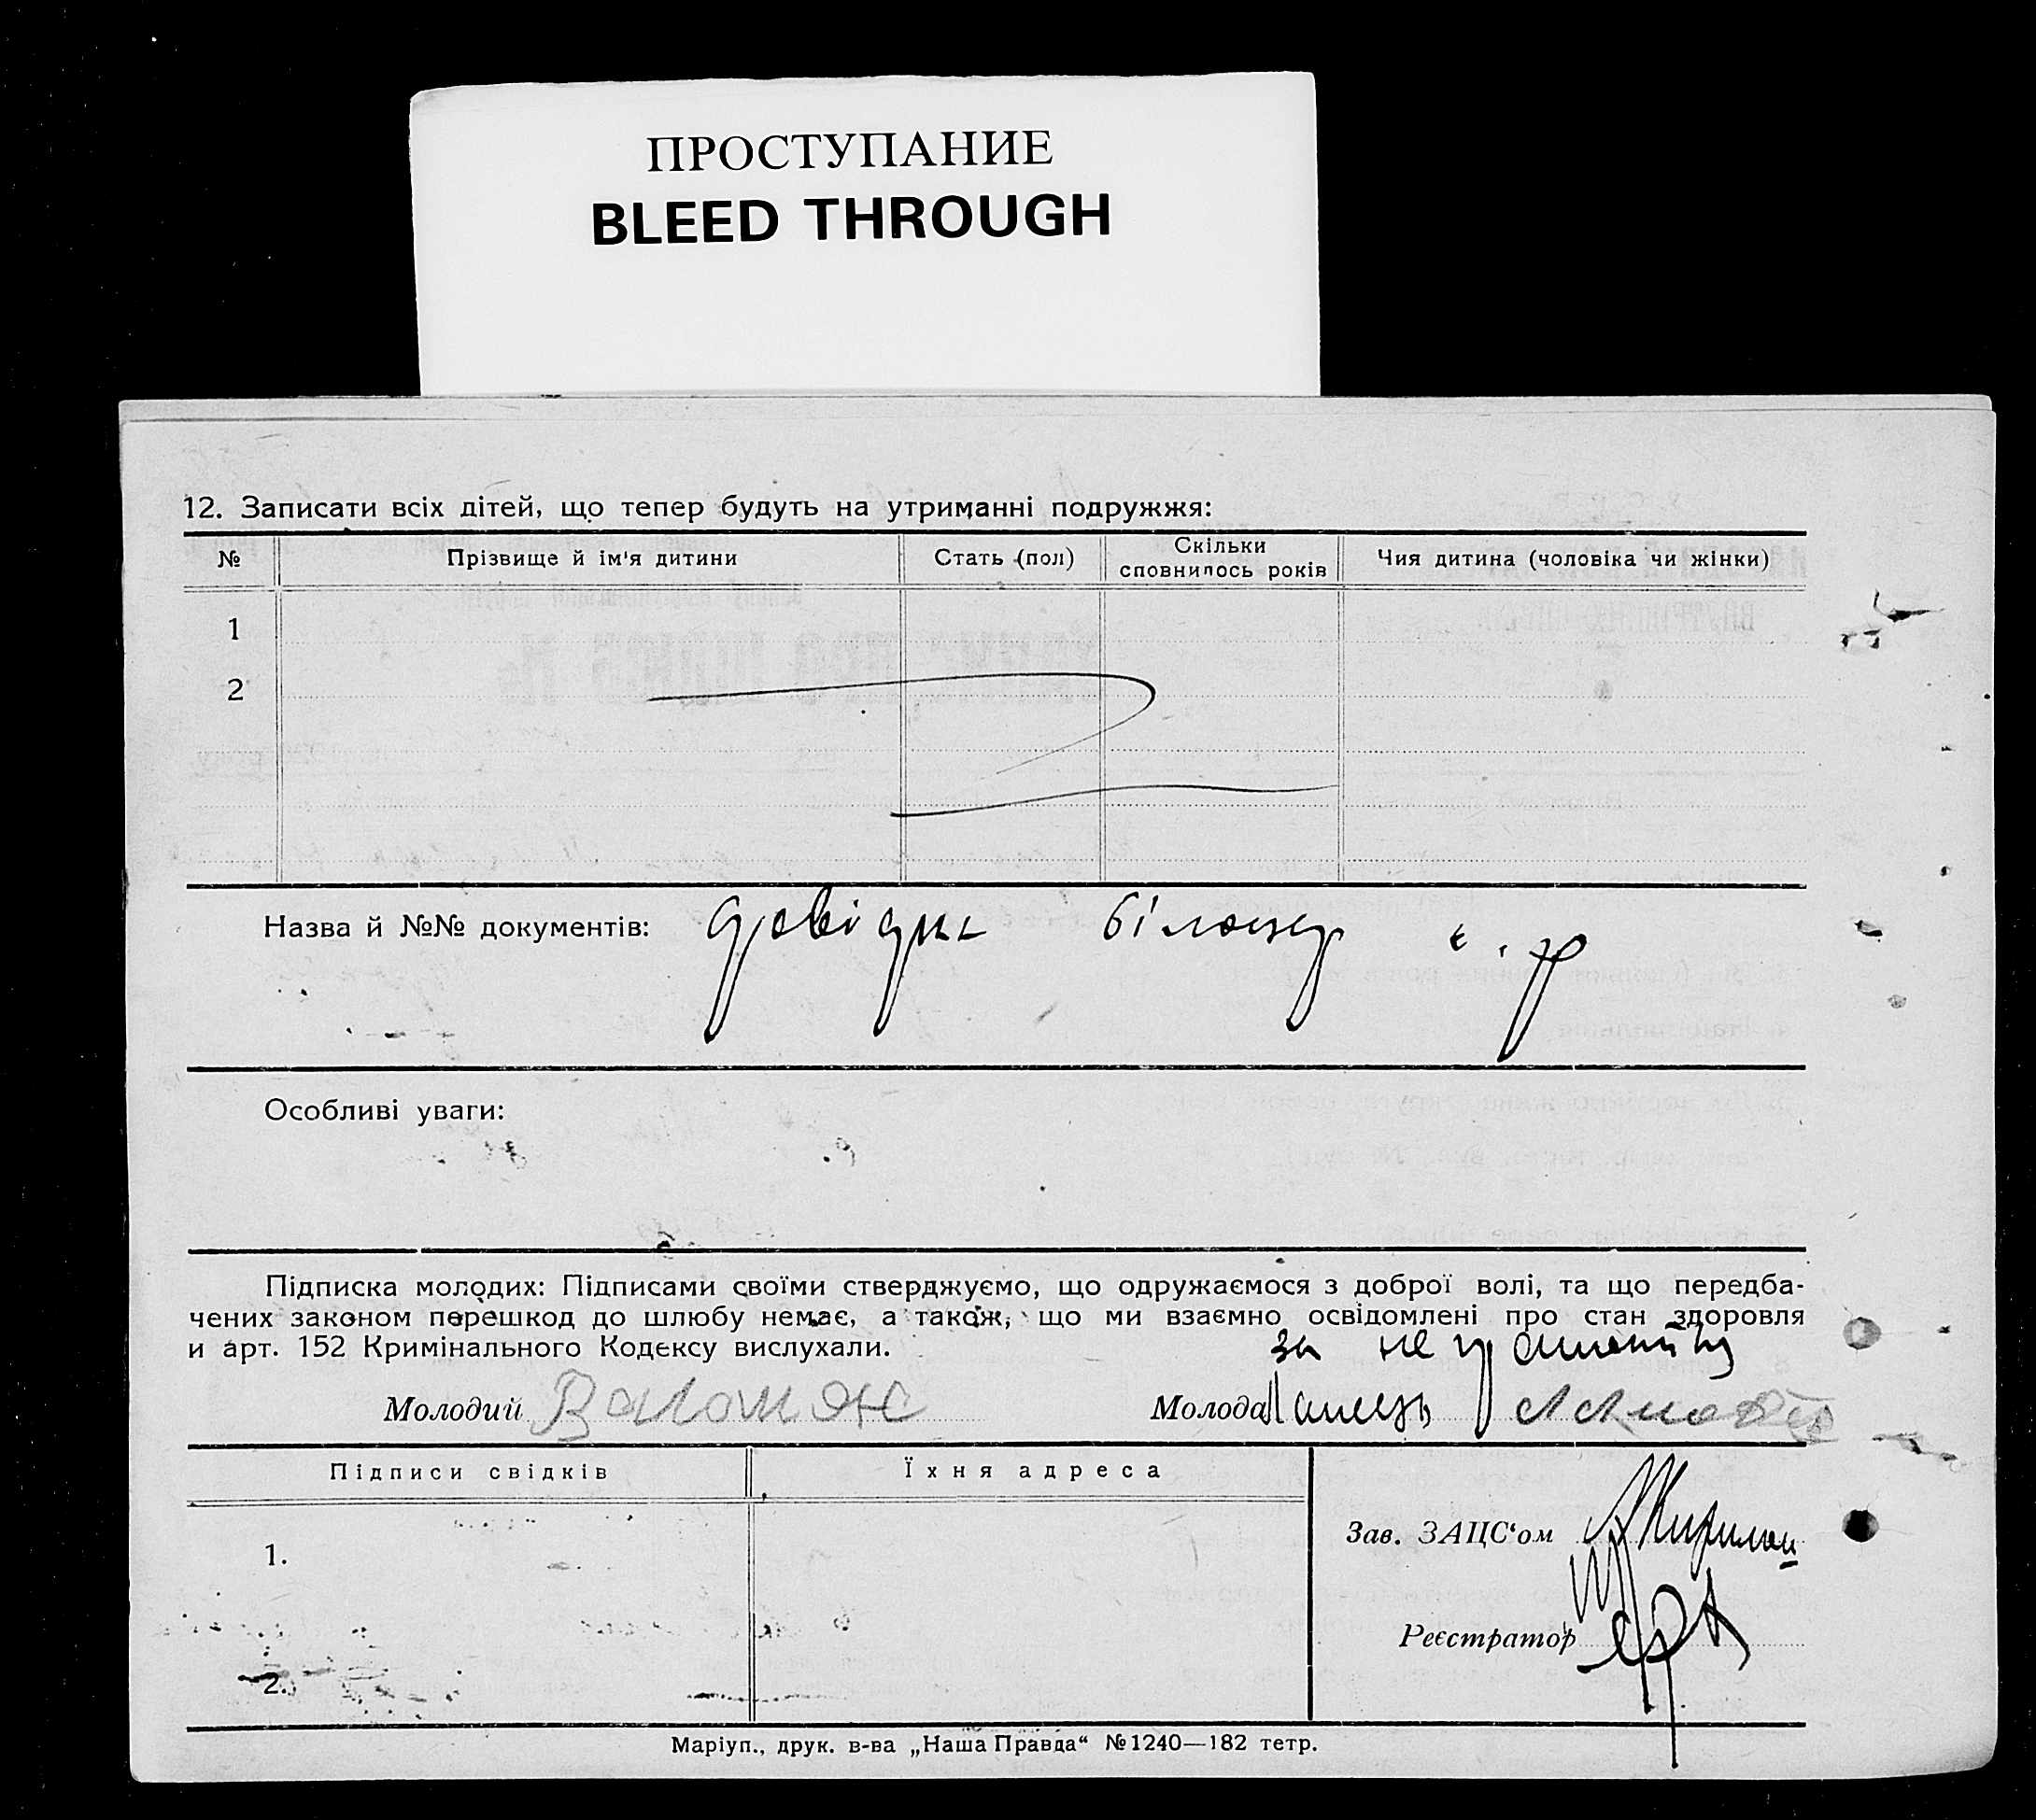 ПРОСТУПАНИЕ
BLEED THROUGH
12. Записати всіх дітей, що тепер будуть на утриманні подружжя:
№ Прізвище й ім'я дитини Стать (пол) Скільки сповнилось років Чия дитина (чоловіка чи жінки)
1
2
Назва й №№ документів: довідки
Особливі уваги:
Підписка молодих: Підписами своїми стверджуємо, що одружаємося з доброї волі, та що передба-
чених законом перешкод до шлюбу немає, а також, що ми взаємно освідомлені про стан здоровля
и арт. 152 Кримінального Кодексу вислухали.
за не
Молодий Молода
Підписи свідків Їхня адреса
1.
Зав. ЗАЦС'ом
Реєстратор
2.
Маріуп., друк. в-ва „Наша Правда“ №1240—182 тетр.